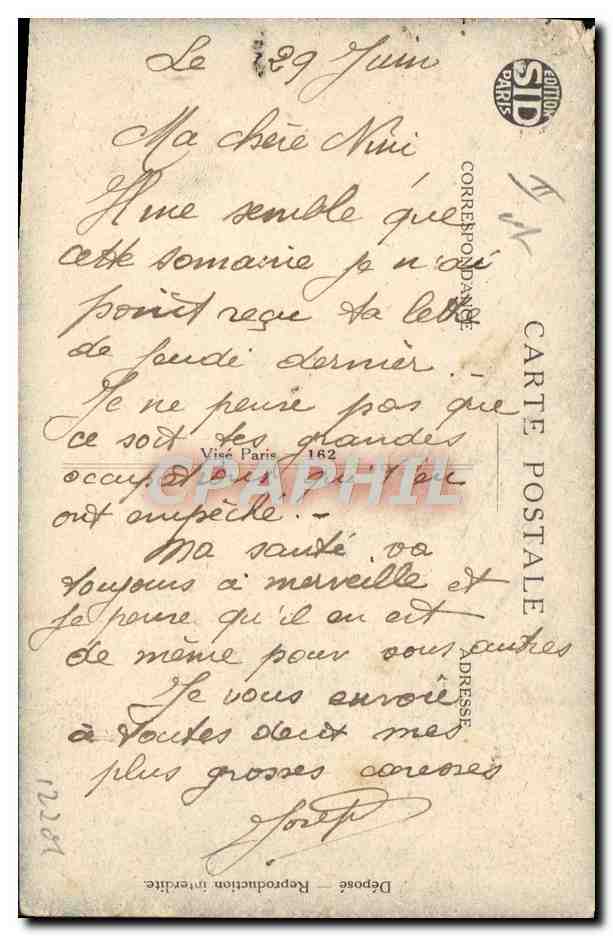 Le 29 Juin
Ma chère Nini
Il me semble que
cette semaine je n'ai
point reçu ta lettre
de Jeudi dernier. -
Je ne pense pas que
ce soit tes grandes
occupations qui t'en
ont empêché. -
Ma santé va
toujours à merveille et
je pense qu'il en est
de même pour vous autres
Je vous envoie
à toutes deux mes
plus grosses caresses
Joseph
EDITION
SID
PARIS
CORRESPONDANCE
CARTE POSTALE
ADRESSE
Visé Paris 162
CPAPHIL
Déposé — Reproduction interdite.